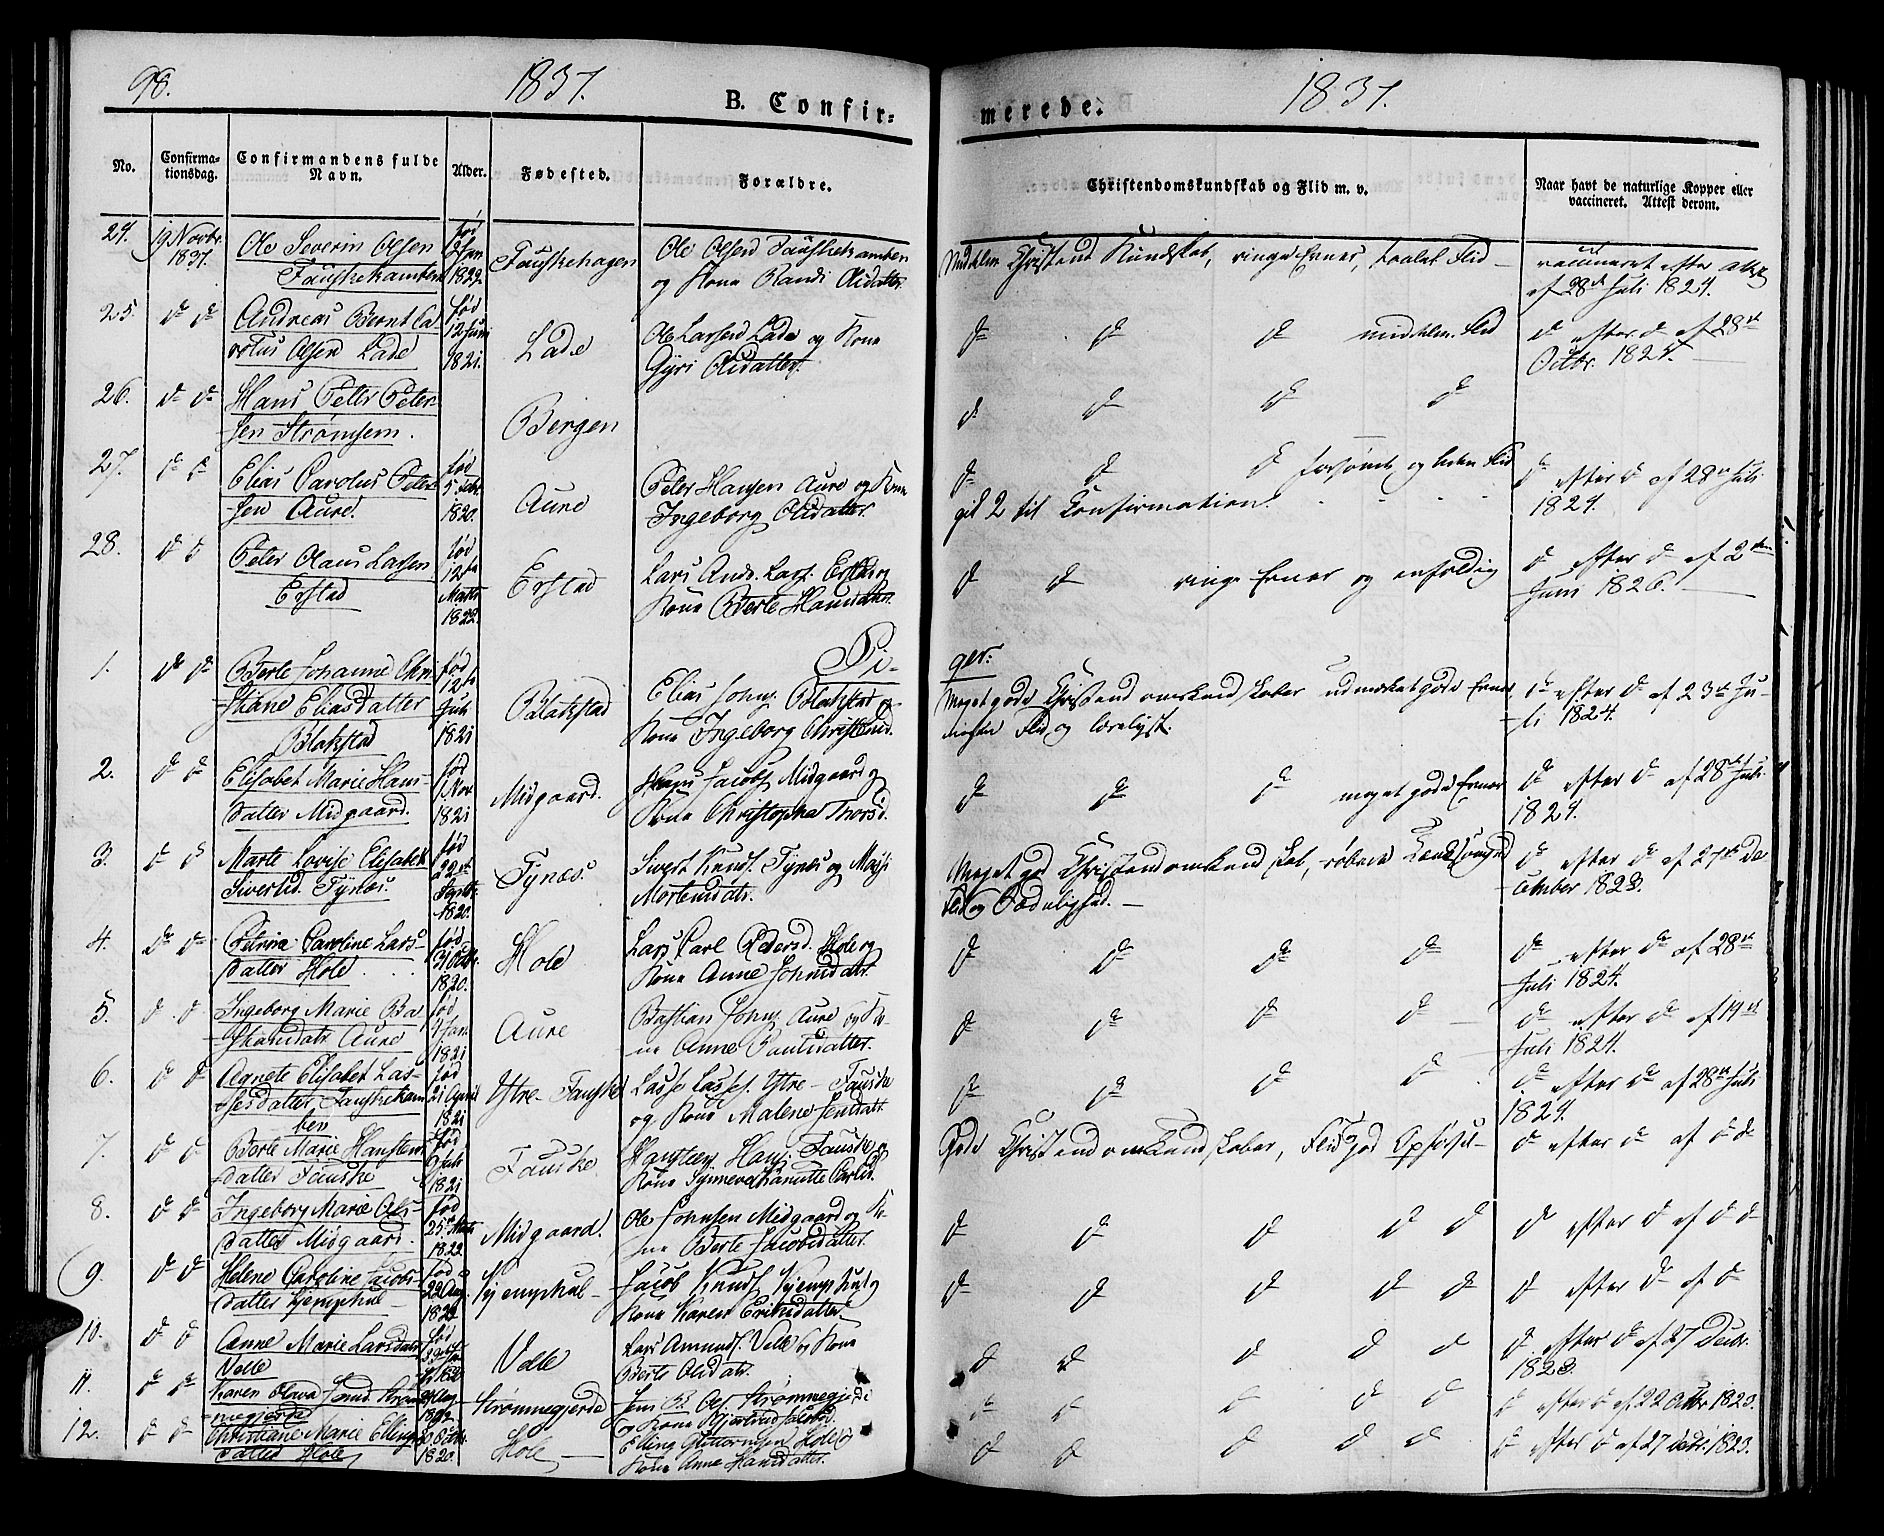 98.
1837.
B. Confir=
merede.
1837.
No.
Confirma-
tionsdag.
Confirmandens fulde
Navn.
Alder.
Fødested.
Forældre.
Christendomskundskab og Flid m. v.
Naar havt de naturlige Kopper eller
vaccineret. Attest derom.
24. 19 Novbr. 1837. Ole Severin Olsen
Fauskekamben
født 1822
Fauskehagen
Ole Olsen Fauskekamben
og Kone Randi Olsdatter
Christend Kundskab, ringe Evner, Flid
vaccineret efter Attest
af 28de Juli 1824.
25. do do Andreas Bernt Ca
rolus Olsen Lade
fød
12 Juni
1821.
Lade
Ole Larsen Lade og Kone
Gyri Olsdatter.
do do do Flid
do efter do af 28de
Octbr. 1824.
26. do do Hans Petter Peter-
sen Strømsem.
Bergen
do do do do
27. do do Elias Carolus Peter
sen Aure.
fød
5 Febr.
1820.
Aure
Peter Hansen Aure og Kone
Ingeborg Olsdatter
do do do og Flid
gik 2 til Confirmation.
do efter do af 28de Juli
1824.
28. do do Peter Olaus Larsen
Erstad
fød
12te
Martz
1822.
Erstad
Lars Ands. Lars. Erstad og
Kone Berte Hansdatter.
do do ringe Evner og enfoldig
do efter do af 2den
Juni 1826.
Pi-
ger.
1. do do Berte Johanne Chri
stiane Eliasdatter
Blakstad
fød
12te
Juli
1821
Blakstad
Elias Johns. Blakstad og
Kone Ingeborg Christensd.
Meget gode Christendomskundskaber udmærket gode Evner
Flid og Lærelyst.
do efter do af 23de Ju-
li 1824.
2. do do Elisabet Marie Hans-
datter Midgaard.
fød
Nov
1821
Midgaard.
Hans Jacobs. Midgaard og
Kone Christopha Thorsd.
do do do meget gode Evner
do efter do af 28de Juli
1824.
3. do do Marte Lovise Elisabet
Sivertsd. Tynæs.
fød
22de
Septbr.
1820.
Tynæs.
Sivert Knuds. Tynæs og
Mortensdatr.
Meget god Christendomskundskab,
Flid og Sædelighed.
do efter do af 27de De
cember 1823.
4. do do Petrina Caroline Lars-
datter Hole
fød
31
1820.
Hole
Lars Carl Hole og
Kone Anne Johnsdatr.
do do do do
do efter do af 28de
Juli 1824.
5. do do Ingeborg Marie Ba
stiandatr Aure
fød
Jan.
1821
Aure
Bastian Johns. Aure og Ko-
ne Anne Poulsdatter.
do do do do
do efter do af 19de
Juli 1824.
6. do do Agnete Elisabet Las-
sesdatter Fauskekam
ben
fød
21 April
1821
Ytre-Fauske
Lasse Lasses. Ytre-Fauske
og Kone Malene Jensdatr
do do do do
do efter do af 28de Juli
1824.
7. do do Berte Marie Hansteens
datter Fauske
fød
Juli
1821
Fauske
Hansteen Hans. Fauske og
Kone Synneva Carlsd.
Gode Christendomskundskaber, Flid god Opførsel
do efter do af do do
8. do do Ingeborg Marie Ols-
datter Midgaard.
fød
25de Martz
1822.
Midgaard.
Ole Johnsen Midgaard og Ko-
ne Berte Jacobsdatter.
do do do do do
do efter do af do do
9. do do Helene Caroline Jacobs-
datter Kjemphul
fød
22 Aug.
Kjemphul
Jacob Knuds. Kjemphul og
Kone Karen Eriksdatter
do do do do do
do efter do af do
10. do do Anne Marie Larsdatr
Velle
fød
Velle
Lars Amunds. Velle og Kone
Berte Olsdatr.
do do do do do
do efter do af 27 Decbr.
1823.
11. do do Karen Olava Jensd. Strøm
megjerde
Strømmegjerde
Jens P. Ols. Strømmegjerde
og Kone Jacobsd.
do do do do do
do efter do af 22 Octbr 1823.
12. do do Christiane Marie Ellings
datter Hole
1820.
Hole
Elling Guttormsen Hole og
Kone Anne Hansdatter.
do do do do do
do efter do af 27 Decbr. 1823.